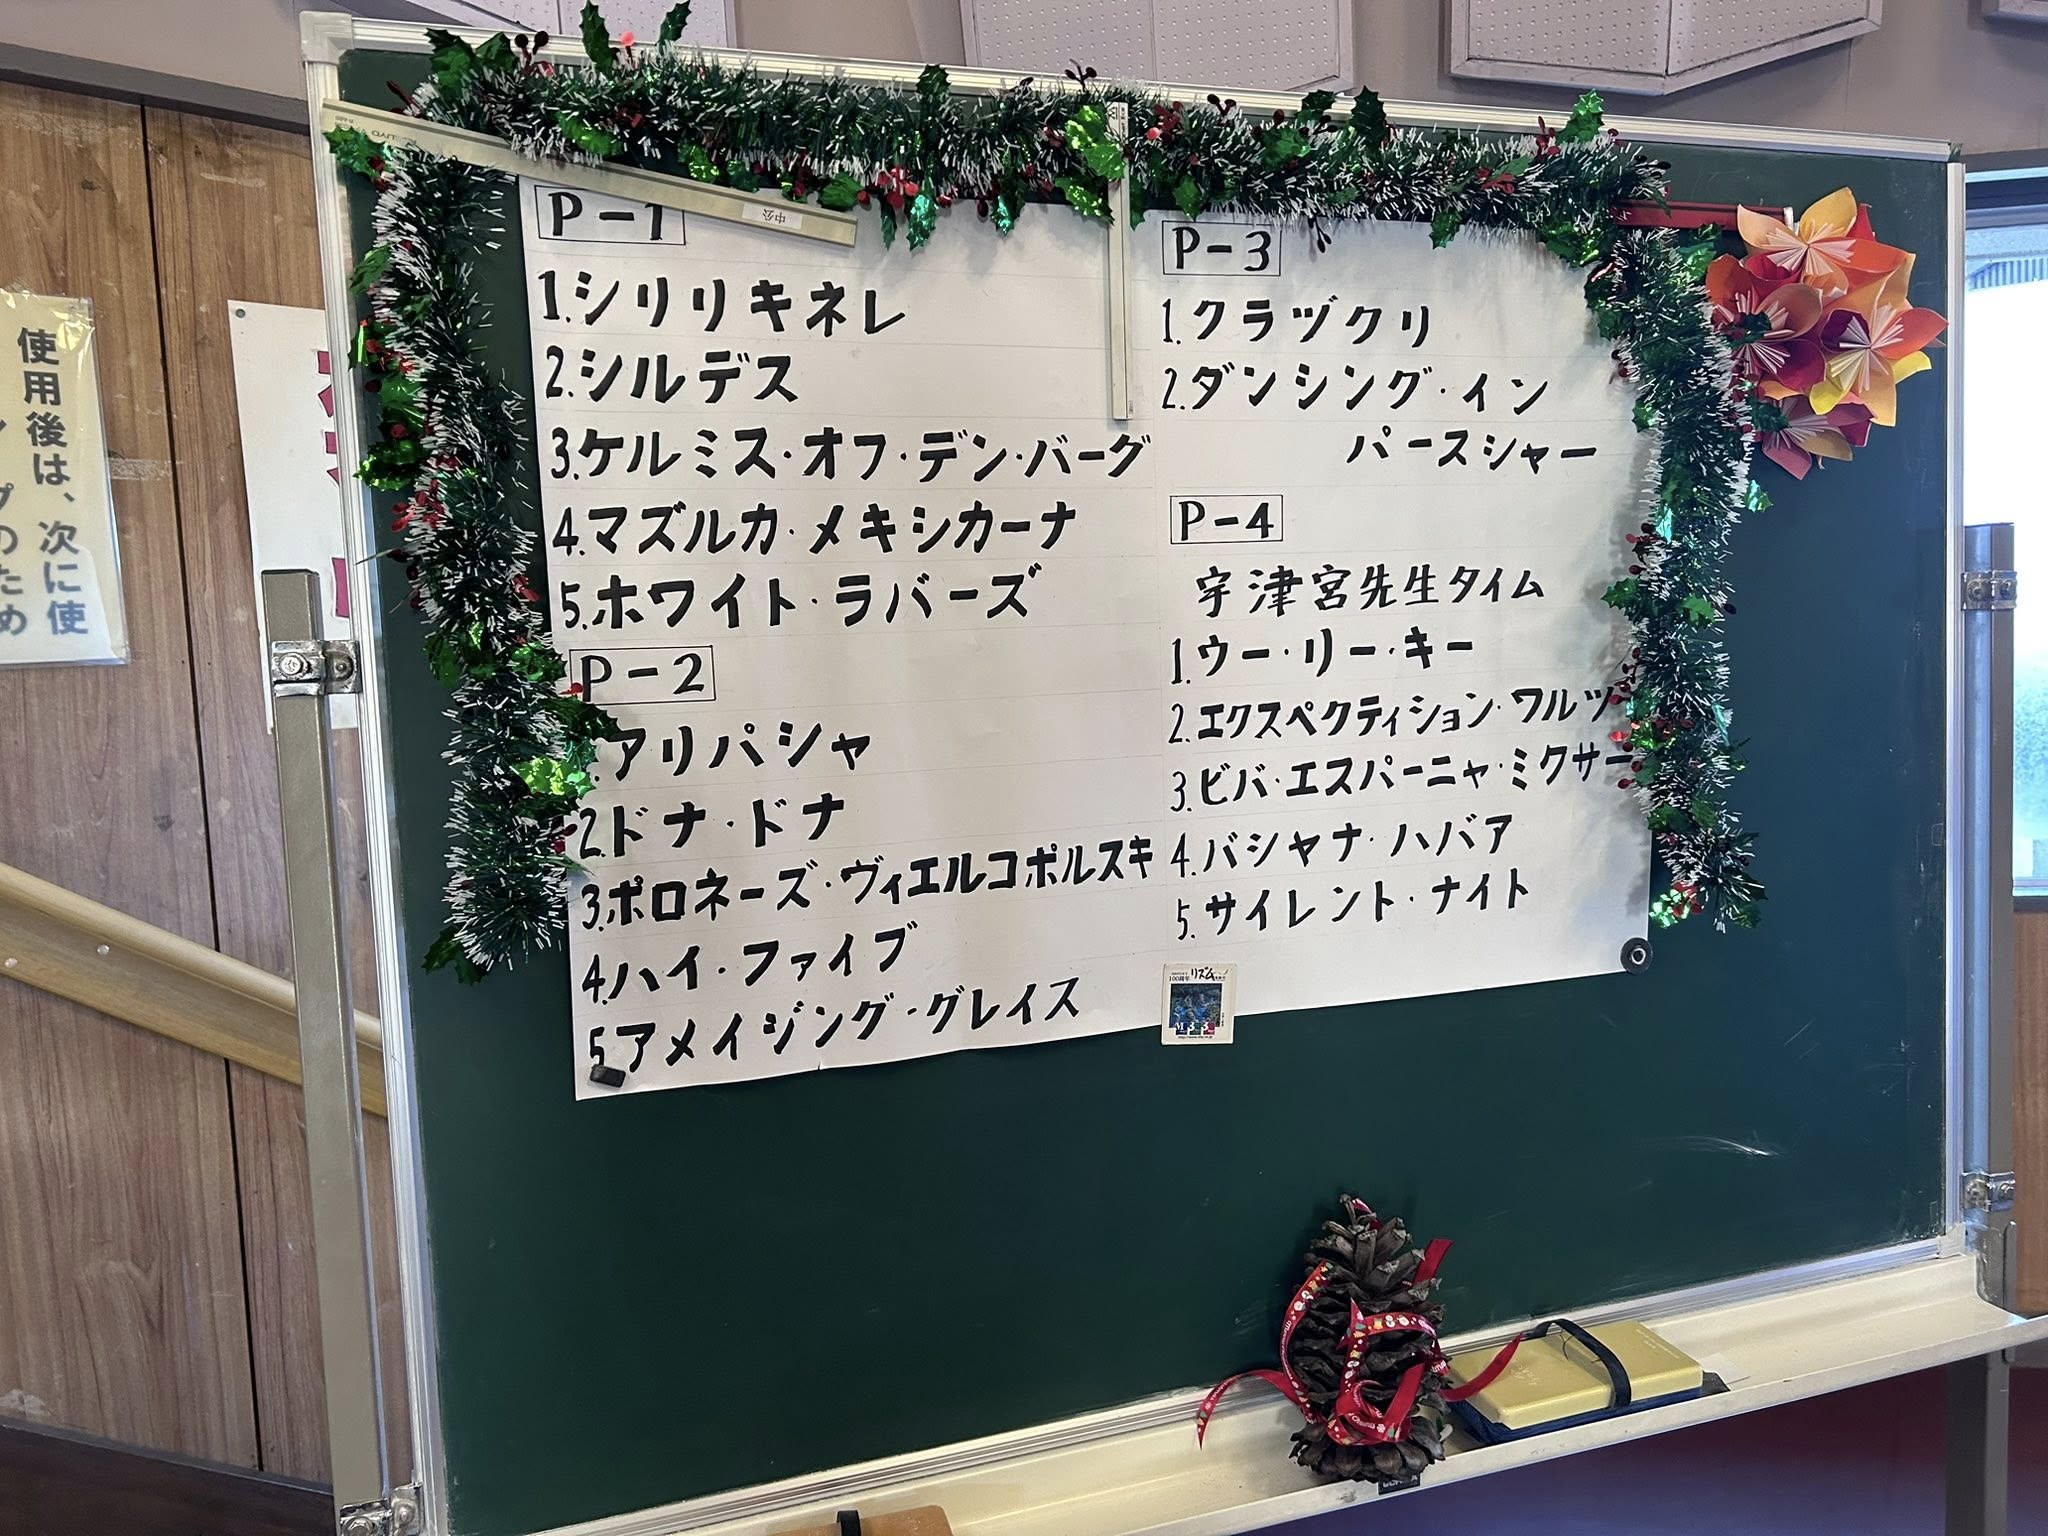 P-1
1.シリリキネレ
2.シルデス
3.ケルミス・オフ・デン・バーグ
4.マズルカ・メキシカーナ
5.ホワイト・ラバーズ
P-2
アリパシャ
2.ドナ・ドナ
3.ポロネーズ・ヴィエルコポルスキ
4.ハイ・ファイブ
5.アメイジング・グレイス
P-3
1.クラヅクリ
2.ダンシング・イン
パースシャー
P-4
宇津宮先生タイム
1.ウー・リー・キー
2.エクスペクティション・ワルツ
3.ビバ・エスパーニャ・ミクサー
4.バシャナ・ハバア
5.サイレント・ナイト
中公
100周年 リズム
使用後は、次に使
プのため